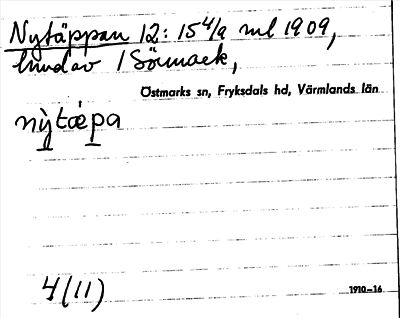 Nytäppan 12: 15 4/9 ml 1909,
lund av 1 Sörmark,
Östmarks sn, Fryksdals hd, Värmlands län
nỳtæpa
4(11)
1910–16